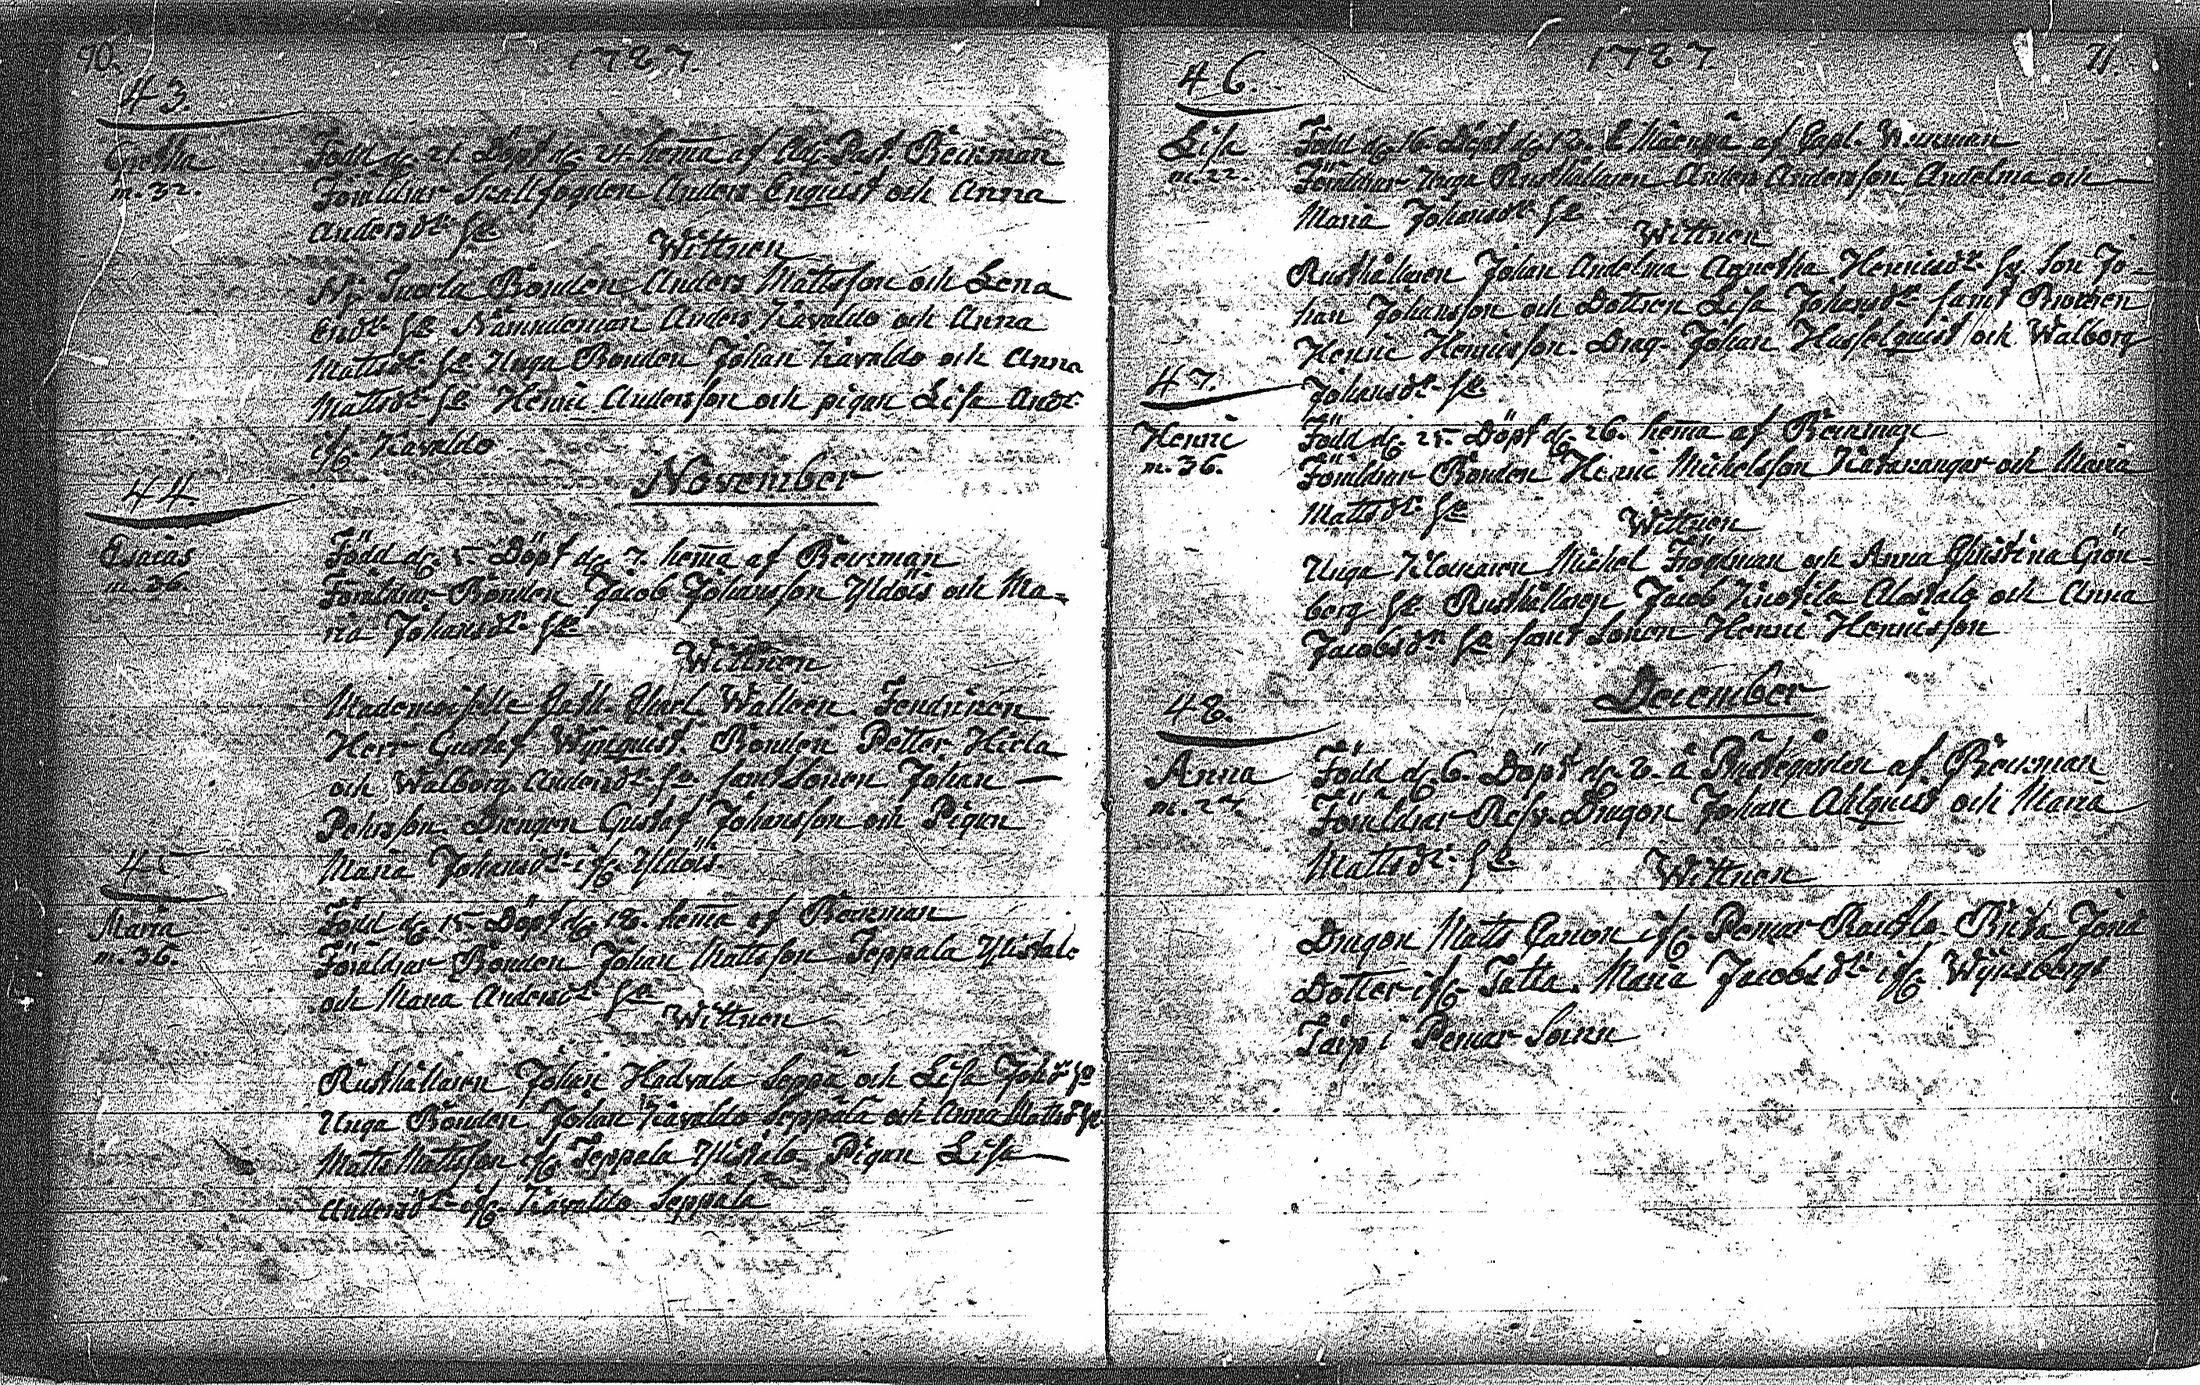 70.
1787.
43.
Gretha
m. 32.
Född d. 21. Döpt d. 24. hema af Adj. Past. Beckman
Föräldrar Skallfogden Anders Enquist och Anna
Andersdr. H:o
Wittnen
Bonden Anders Mattsson och Lena
Nämndeman Anders Kavaldo och Anna
Mattsdr. H:o Unga Bonden Johan Kavaldo och Anna
Mattsdr. H:o Henric Andersson och pigan Lisa Andr.
ifr. Kavaldo
November
44.
Esaias
m. 36.
Född d. 5. Döpt d. 7. hema af Beckman
Föräldrar Bonden Jacob Johansson Yldöis och Ma-
ria Johansdr. H:o
Wittnen
Mademoiselle Walleen. Fendricken
Herr Gustaf Wynquist. Bonden Petter Hirla
och Walborg Andersdr. H:o samt Sonen Johan
Pehrsson. Drengen Gustaf Johansson och Pigan
Maria Johansdr. ifr. Yldöis
45
Maria
m. 36.
Född d. 15. Döpt d. 18. hema af Beckman
Föräldrar Bonden Johan Mattsson Seppala Ylistalo
och Maria Andersdr. H:o
Wittnen
Rusthållaren Johan Hadvala Seppä och Lisa Johdr. H:o
Unga Bonden Johan Kavaldo Seppälä och Anna Mattsdr. H:o
Matts Mattsson ifr. Seppala Ylistalo Pigan Lisa
Andersdr. ifr. Kavaldo Seppälä
1787.
71.
46.
Lisa
m. 22.
Född d. 16. Döpt d. 18. af Capl. Wennman
Föräldrar Unga Rusthållaren Anders Andersson Andelma och
Maria Johansdr. H:o
Wittnen
Rusthållaren Johan Andelma Agnetha Henricsdr. H:o Son Jo-
han Johansson och Dottren Lisa Johansdr. samt Brorsen
Henric Henricsson. Drag. Johan Hasselquist och Walborg
Johansdr. H:o
47.
Henric
m. 36.
Född d. 25. Döpt d. 26. hema af Beckman
Föräldrar Bonden Henric Michelsson Katavangar och Maria
Mattsdr. H:o
Wittnen
Unga Klockaren Michel Frögman och Anna Christina Grön-
berg H:o Rusthållaren Jacob Knofila Alostalo och Anna
Jacobsdr. H:o samt Sonen Henric Henricsson
December
48.
Anna
m. 27.
Född d. 6. Döpt d. 8. å Prästegården af Beckman
Föräldrar Resv. Dragon Johan Ahlquist och Maria
Mattsdr. H:o
Wittnen
Dragon Matts Canon ifr. Pemar Brita
Dotter ifr. Tatta. Maria Jacobsdr. ifr. Wijksbergs
Torp i Pemar Socn